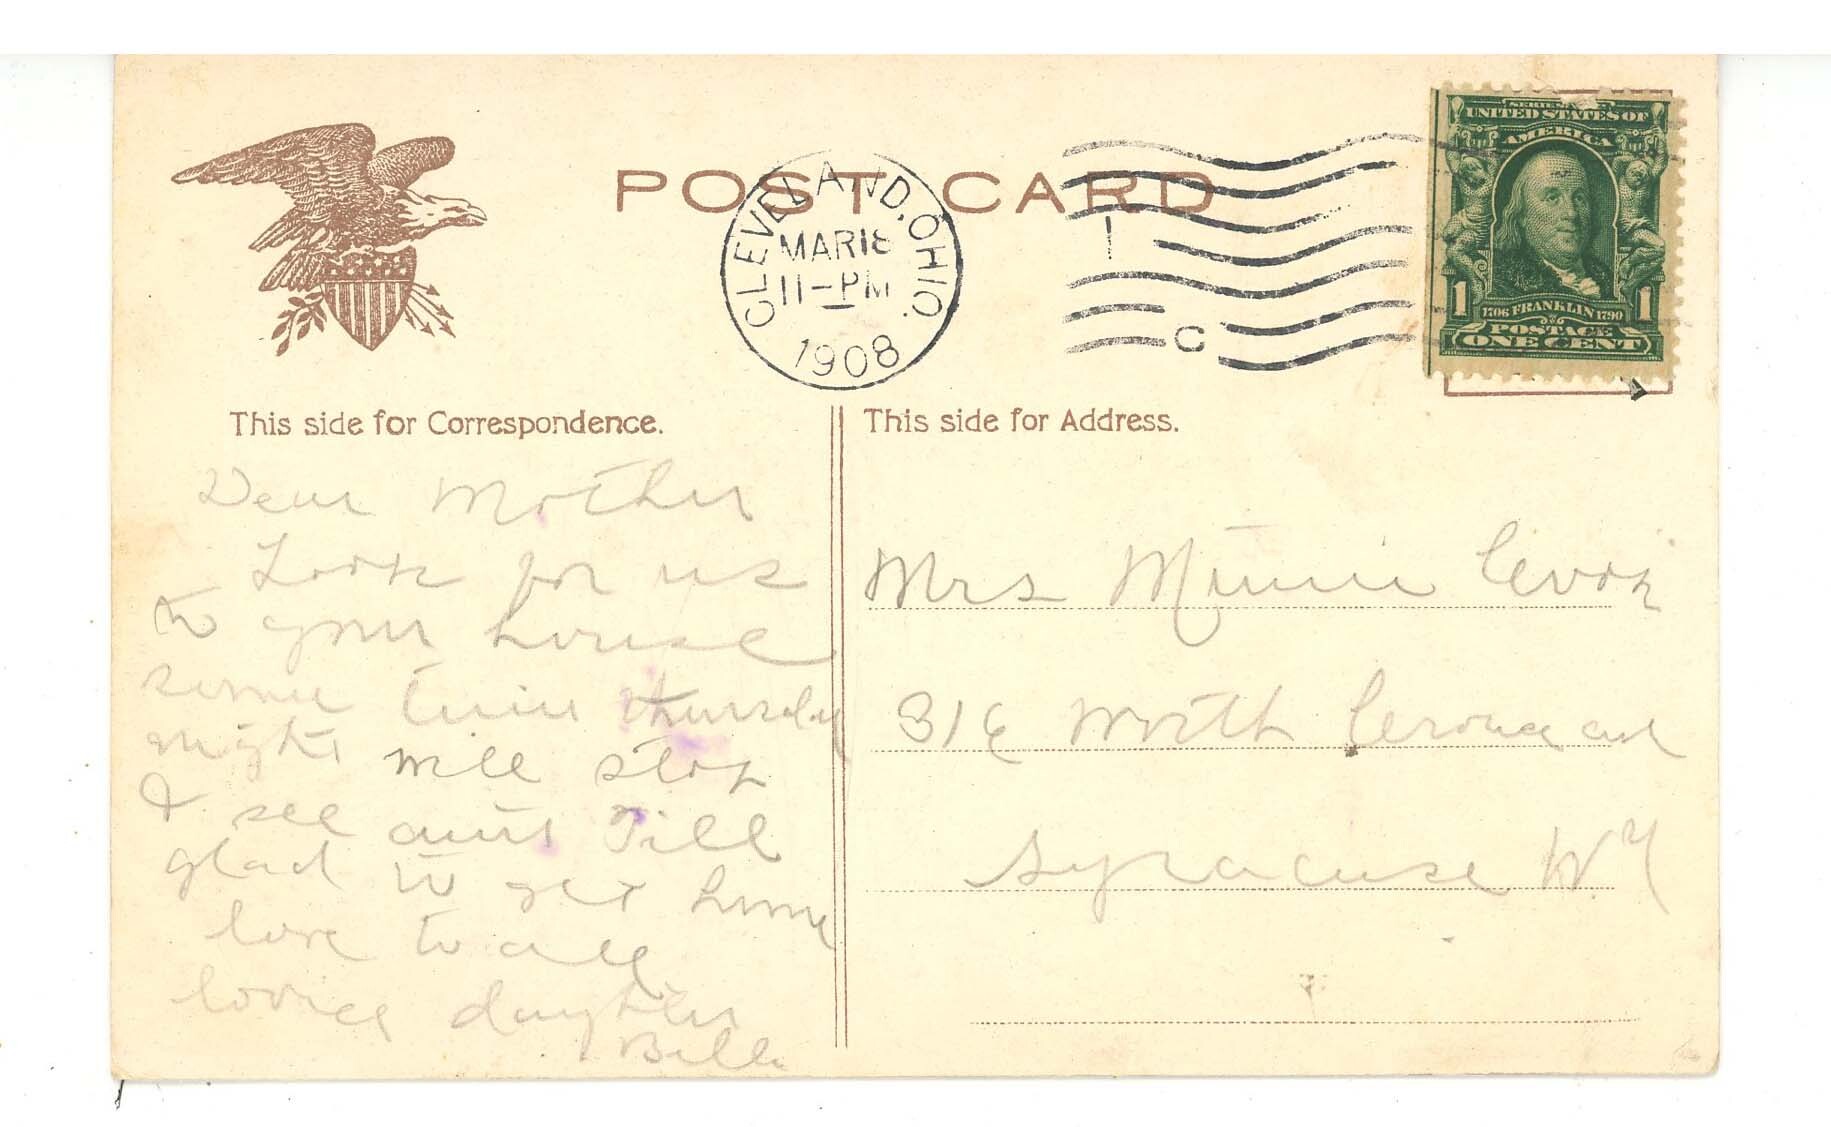 POST CARD
CLEVELAND, OHIO.
MAR 18
11-PM
1908
C
SERIES
UNITED STATES OF
AMERICA
1 1706 FRANKLIN 1790 1
POSTAGE
ONE CENT
This side for Correspondence.
Dear Mother
Look for us
to your house
some time thursday
night will stop
& see aunt Till
glad to get home
love to all
daughter
Bell
This side for Address.
Mrs Minnie Cook
316 North ave
Syracuse NY